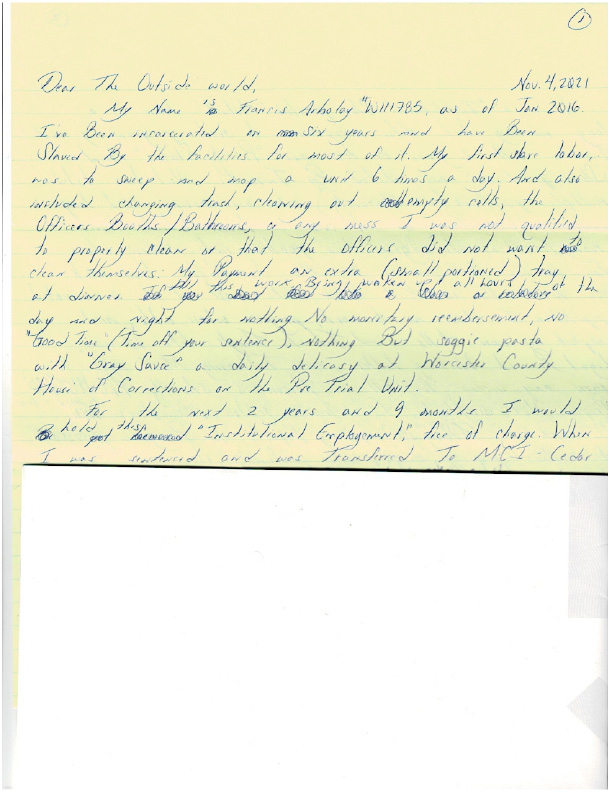 1
Dear The Outside world, Nov. 4, 2021
My Name is Francis "W111785, as of Jan 2016.
I've Been incarcerated on six years and have Been
Slaved By the facilities for most of it. My first slave labor,
was to sweep and mop a unit 6 times a day. And also
included changing trash, cleaning out empty cells, the
Officers Booths/Bathrooms, or any mess I was not qualified
to properly clean or that the officers did not want to
clean themselves. My Payment an extra (small portioned) tray
at dinner. All this work, Being waken up at all hours of the
day and night for nothing No monetary reembersement, no
"Good Time" (Time off your sentence), nothing But soggie pasta
with "Gray Sauce" a daily delicasy at Worcester County
House of Corrections on the Pre Trial Unit.
For the next 2 years and 9 months I would
hold this "Institutional Employement," free of charge. When
I was sentenced and was Transfered To MCI-Cedar